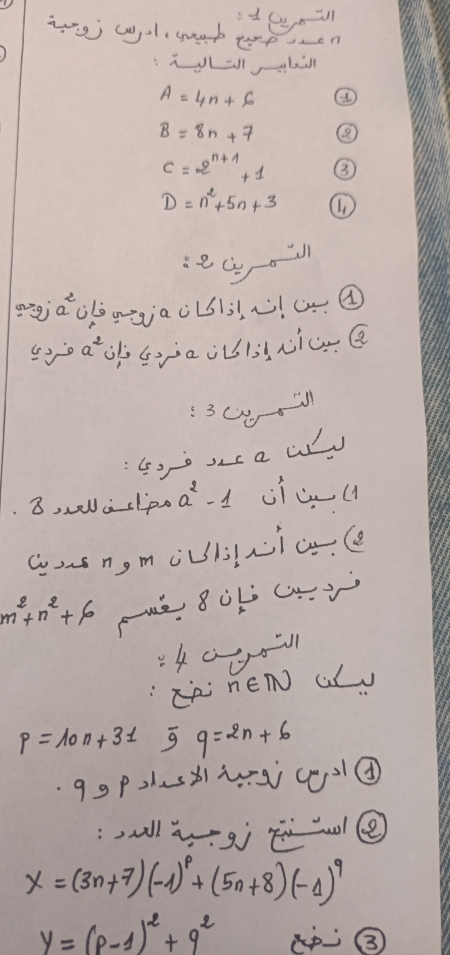 التمرين 1 :
n عدد صحيح طبيعي، ادرس زوجية
التعابير التالية :
① A = 4n + 6
② B = 8n + 7
③ C = 2^{n+1} + 1
④ D = n² + 5n + 3
التمرين 2 :
① بين إنه إذا كان a زوجي فإن a² زوجي
② بين أنه إذا كان a فردي فإن a² فردي
التمرين 3 :
ليكن a عدد فردي :
1) بين أن a² - 1 مضاعف للعدد 8 .
2) بين أنه إذا كان m و n عددين
فرديين فإن 8 يقسم m² + n² + 6
التمرين 4 :
ليكن n ∈ ℕ نضع :
p = 10n + 31 و q = 2n + 6
① ادرس زوجية الاعداد p و q .
② استنتج زوجية العدد :
X = (3n+7)(-1)^p + (5n+8)(-1)^q
③ نضع Y = (p-1)² + q²